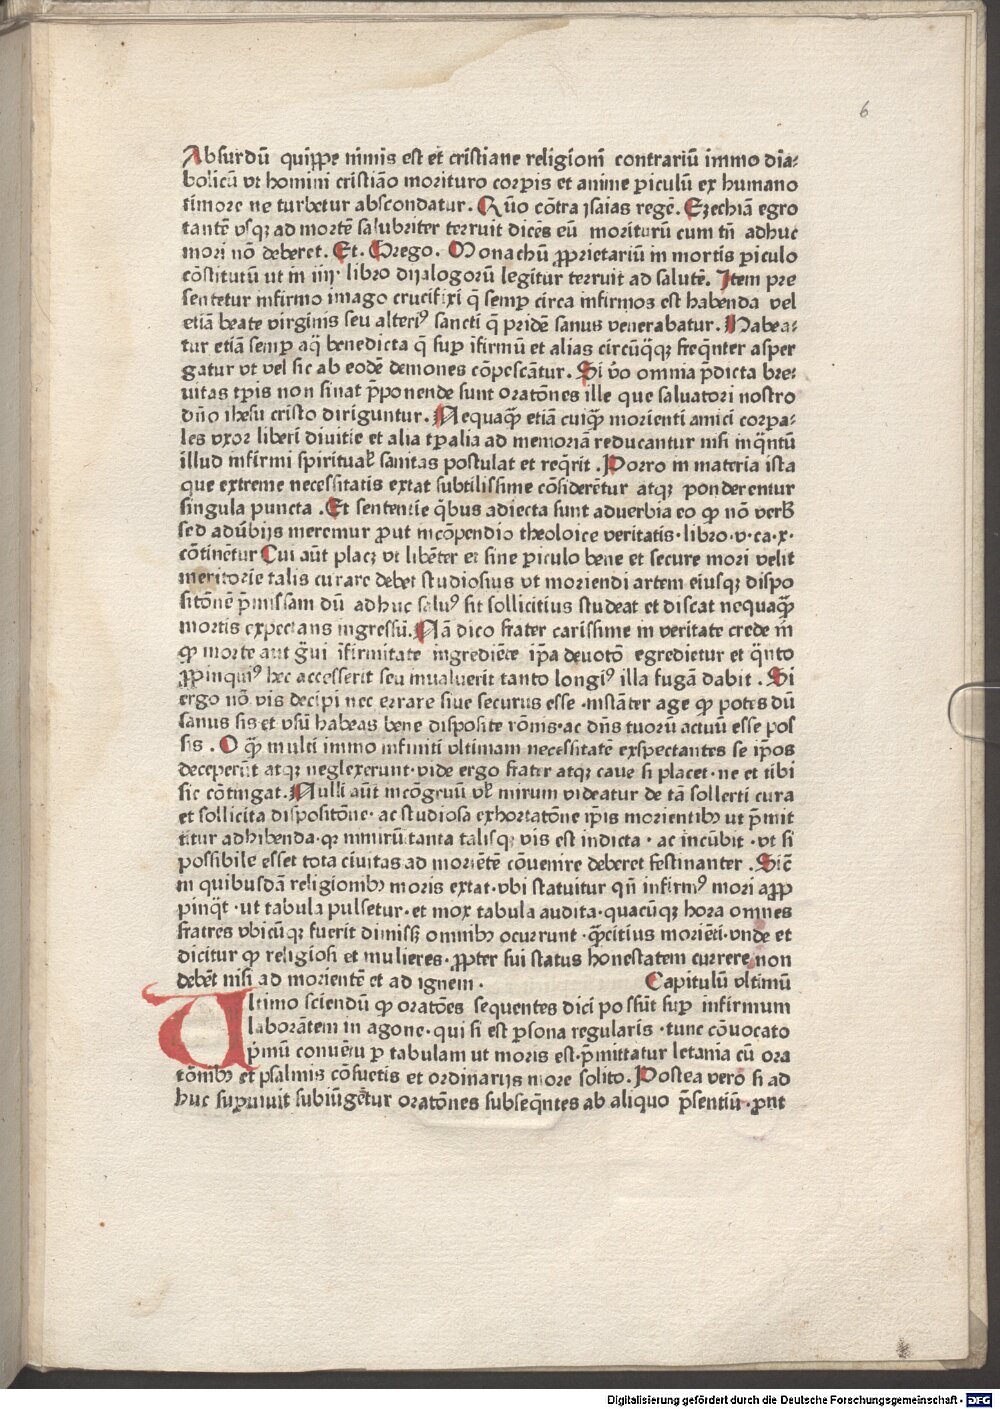 6
Absurdū quippe nimis est et cristiane religioni contrariū immo dia⸗
bolicū vt homini cristiāo morituro corpis et anime piculū ex humano
timore ne turbetur abscondatur. Quo cōtra ysaias regē. Ezechiā egro
tantē vsqꝫ ad mortē salubriter terruit dicēs eū moriturū cum tn̄ adhuc
mori nō deberet. Et. Grego. Monachū ꝓprietariū in mortis piculo
cōstitutū ut in iiij· libro dyalogorū legitur terruit ad salutē. Item pre
sentetur infirmo imago crucifixi q̄ semp circa infirmos est habenda vel
etiā beate virginis seu alteriꝰ sancti q̄ pridē sanus venerabatur. Habea⸗
tur etiā semp aq̄ benedicta q̄ sup īfirmū et alias circūq̄qꝫ freq̄nter asper
gatur vt vel sic ab eodē demones cōpescātur. Si v̄o omnia p̄dicta bre⸗
uitas tp̄is non sinat p̄ponende sunt oratōnes ille que saluatori nostro
dn̄o ihesu cristo diriguntur. Nequaq̄ etiā cuiq̄ morienti amici corpa⸗
les vxor liberi diuitie et alia tp̄alia ad memoriā reducantur nisi inq̄ntū
illud infirmi spiritual' sanitas postulat et req̄rit. Porro in materia ista
que extreme necessitatis extat subtilissime cōsiderētur atqꝫ ponderentur
singula puncta. Et sententie q̄bus adiecta sunt aduerbia eo ꝙ nō verb'
sed adūbijs meremur ꝓut in cōpendio theoloice veritatis· libro·v·ca·x·
cōtinētur Cui aūt placꝫ vt libēter et sine piculo bene et secure mori velit
meritorie talis curare debet studiosius vt moriendi artem eiusqꝫ dispo
sitōnē p̄missam dū adhuc saluꝰ sit sollicitius studeat et discat nequaq̄
mortis expectans ingressū. Nā dico frater carissime in veritate crede m̄
ꝙ morte aut ḡui īfirmitate ingrediēte ip̄a deuotō egredietur et q̄nto
ꝓpinquiꝰ hec accesserit seu inualuerit tanto longiꝰ illa fugā dabit. Si
ergo nō vis decipi nec errare siue securus esse ·instāter age ꝙ potes dū
sanus sis et vsū habeas bene disposite rōnis·ac dn̄s tuorū actuū esse pos
sis. O q̄ multi immo infiniti vltimam necessitatē exspectantes se ip̄os
deceperūt atqꝫ neglexerunt·vide ergo frater atqꝫ caue si placet·ne et tibi
sic cōtingat. Nulli aūt incōgruū vl' mirum videatur de tā sollerti cura
et sollicita dispositōne· ac studiosa exhortatōne ip̄is morientibꝫ ut p̄mit
titur adhibenda·qꝫ nimirū tanta talisqꝫ vis est indicta · ac incūbit ·vt si
possibile esset tota ciuitas ad moriētē cōuenire deberet festinanter. Sic̄
in quibusdā religionibꝫ moris extat·vbi statuitur qn̄ infirmꝰ mori aꝓp
pinq̄t ·ut tabula pulsetur·et mox tabula audita·quacūqꝫ hora omnes
fratres vbicūqꝫ fuerit dimissꝫ omnibꝫ ocurrunt ·q̄citius moriēti·vnde et
dicitur ꝙ religiosi et mulieres·ꝓpter sui status honestatem currere non
debēt nisi ad morientē et ad ignem· Capitulū vltimū
Ultimo sciendū ꝙ oratōes sequentes dici possūt sup infirmum
laborātem in agone·qui si est psona regularis ·tunc cōuocato
p̄mū conuētu p tabulam ut moris est·p̄mittatur letania cū ora
tōnibꝫ et psalmis cōsuetis et ordinarijs more solito. Postea vero si ad
huc supuiuit subiūgētur oratōnes subseq̄ntes ab aliquo p̄sentiū·put
Digitalisierung gefördert durch die Deutsche Forschungsgemeinschaft - DFG